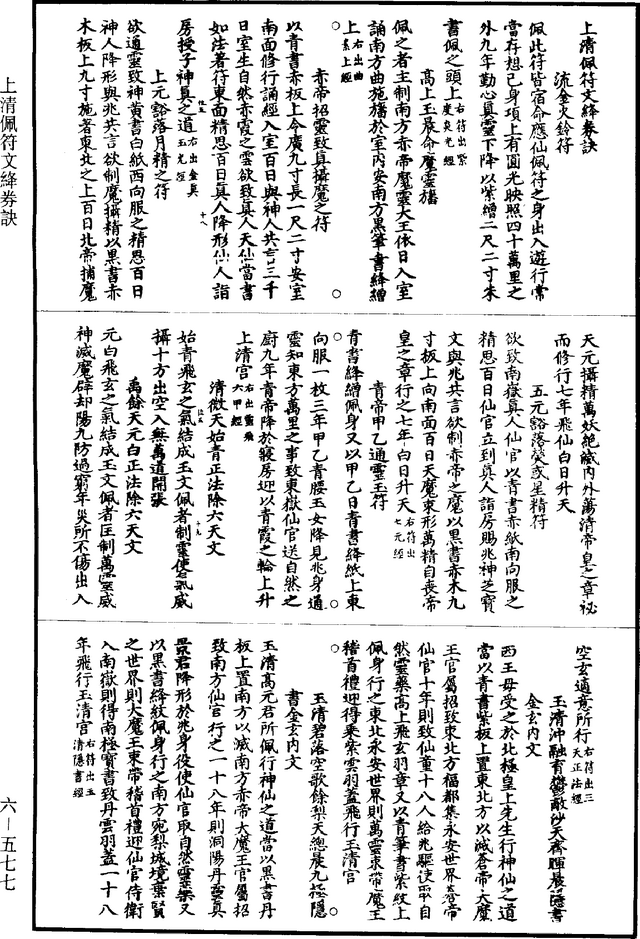 上清佩符文絳券訣
流金火鈴符
佩此符皆宿命應仙佩符之身出入遊行常
當存想己身項上有圓光映照四十萬里之
外九年勤心真靈下降以紫繒二尺二寸朱
書佩之頭上右符出紫度炎光經
高上玉晨命魔靈旛
佩之者主制南方赤帝魔靈大王依日入室
誦南方曲施旛於室內安南方黑筆書絳繒
上右出曲素上經
赤帝招靈致真攝魔之符
以青書赤板上令廣九寸長一尺二寸安室
南面修行誦經入室百日與神人共言三千
日室生自然赤霞之雲欲致真人天仙當書
如法著符東面精思百日真人降形仙人詣
房授子神真之道右出金真玉光經
上元豁落月精之符
欲通靈致神黃書白紙西向服之精思百日
神人降形與兆共言欲制魔攝精以黑書赤
木板上九寸施著東北之上百日北帝捕魔
天元攝精萬妖絕滅內外蕩清帝皇之章祕
而修行七年飛仙白日升天
五元豁落熒惑星精符
欲致南嶽真人仙官以青書赤紙南向服之
精思百日仙官立到真人詣房賜兆神芝寶
文與兆共言欲制赤帝之魔以黑書赤木九
寸板上向南面百日天魔束形萬精自喪帝
皇之章行之七年白日升天右符出七元經
青帝甲乙通靈玉符
青書絳繒佩身又以甲乙日青書絳紙上東
向服一枚三年甲乙青腰玉女降見兆身通
靈知東方萬里之事致東嶽仙官送自然之
廚九年青帝降於寢房迎以青霞之輪上升
上清宮右出靈飛六甲經
清微天始青正法除六天文
始青飛玄之氣結成玉文佩者制靈使氣威
攝十方出空入無萬道開張
禹餘天元白正法除六天文
元白飛玄之氣結成玉文佩者匡制萬靈威
神滅魔辟却陽九防過窮年災所不傷出入
空玄適意所行右符出三天正法經
玉清沖融育鬱敵沙天齊暉晨隱書
金玄內文
西王母受之於北極皇上先生行神仙之道
當以青書紫板上置東北方以滅蒼帝大魔
王官屬招致東北方福都集永安世界蒼帝
仙官十年則致仙童十八人給兆驅使所自
然靈藥高上飛玄羽章又以青筆書紫紋上
佩身行之東北永安世界則萬靈束帶魔王
稽首禮迎得乘紫雲羽蓋飛行玉清宮
玉清碧落空歌餘梨天總晨九極隱
書金玄內文
玉清高元君所佩行神仙之道當以黑書丹
板上置南方以滅南方赤帝大魔王官屬招
致南方仙官行之一十八年則洞陽丹靈真
君降形於兆身役使仙官取自然靈藥又
以黑書絳紋佩身行之南方宛梨城境棄賢
之世界則大魔王束帶稽首禮迎仙官侍衛
入南嶽則得南極寶書致丹雲羽蓋一十八
年飛行玉清宮右符出玉清隱書經
上清佩符文絳券訣
六—五七七